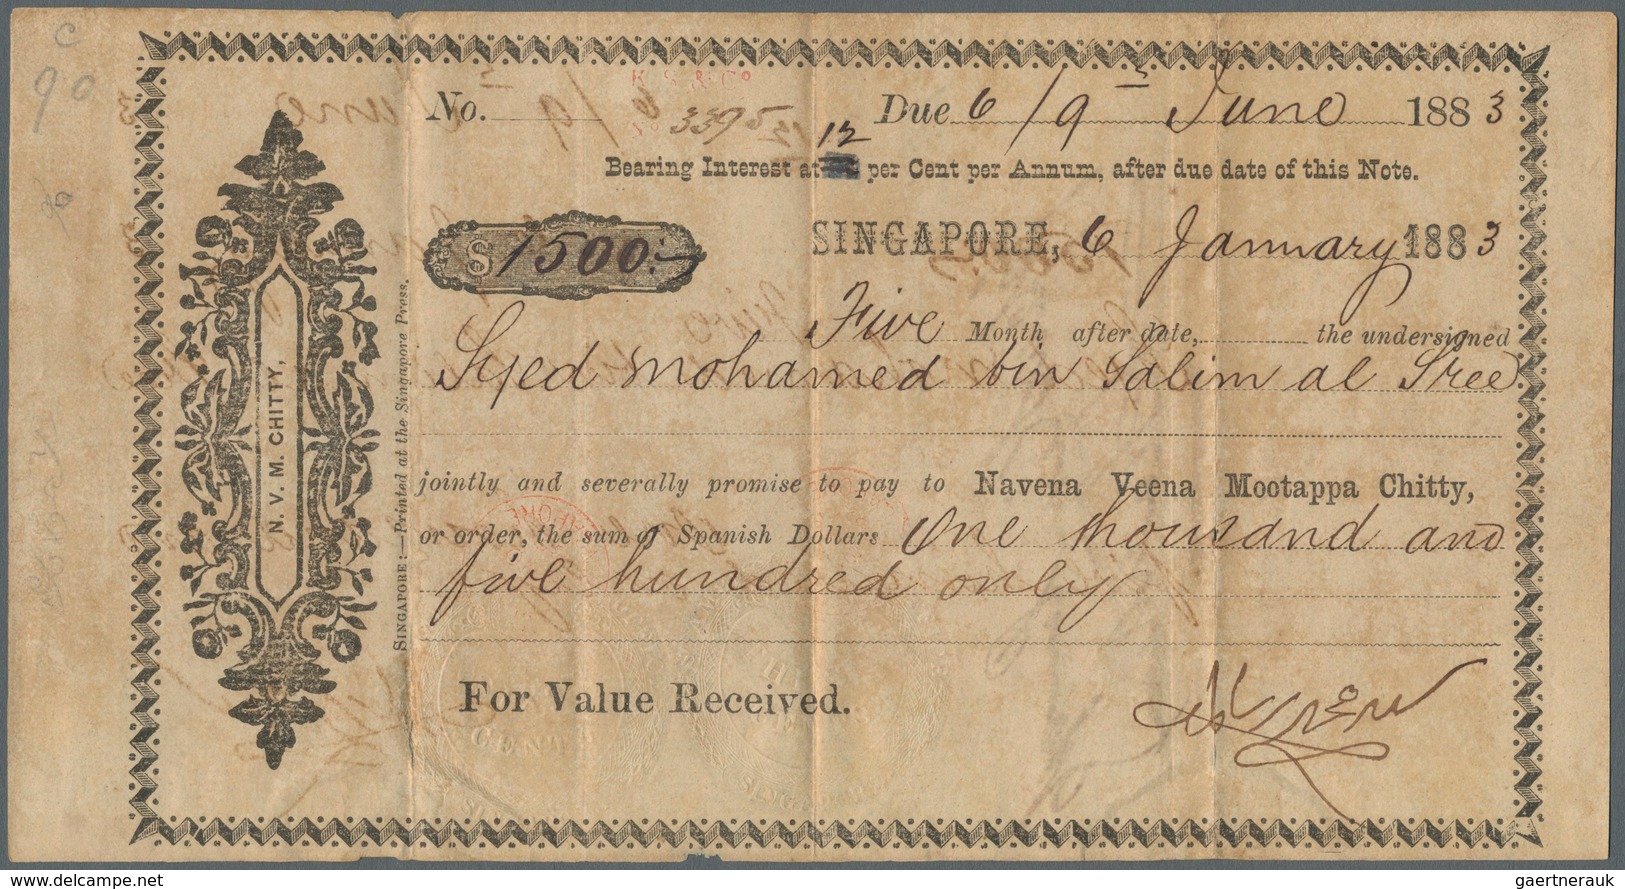 c
90
No. K. S. & Co Due 6/9 June 1883
No 3395
12
Bearing Interest at per Cent per Annum, after due date of this Note.
$1500:
SINGAPORE, 6 January 1883
Five Month after date, the undersigned
Syed Mohamed bin Salim al Sree
jointly and severally promise to pay to Navena Veena Mootappa Chitty,
or order, the sum of Spanish Dollars One thousand and
five hundred only
For Value Received.
N. V. M. CHITTY,
SINGAPORE:—Printed at the Singapore Press.
CENT
SINGAPORE
www.delcampe.net
gaertnerauk